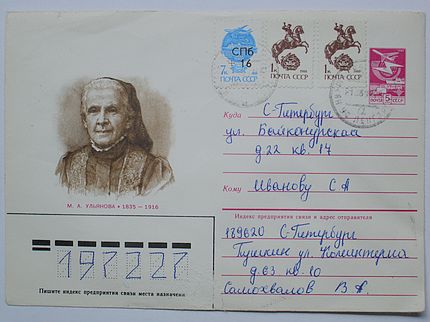 СПб
16
7к. ПОЧТА СССР
1к ПОЧТА СССР
1к ПОЧТА СССР
ПОЧТА 5к СССР
М. А. УЛЬЯНОВА • 1835 — 1916
Куда С-Петербург
ул. Байконурская
д 22 кв. 17
Кому Иванову С А
Индекс предприятия связи и адрес отправителя
189620 С-Петербург
Пушкин ул. Коминтерна
д. 63 кв. 10
Самохвалов В А.
197227
Пишите индекс предприятия связи места назначения